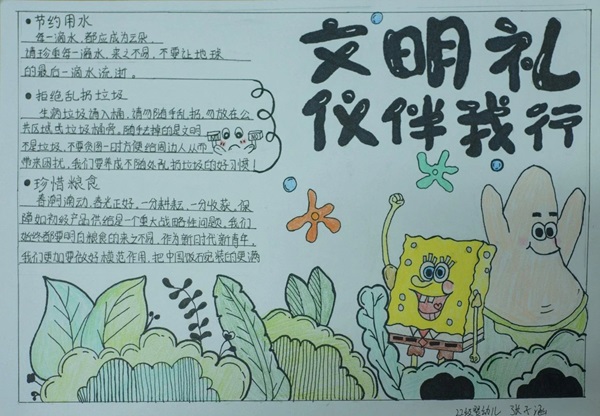 文明礼
仪伴我行
•节约用水
每一滴水，都应成为云朵，
请珍重每一滴水，来之不易，不要让地球
的最后一滴水流逝。
•拒绝乱扔垃圾
生病垃圾请入桶，请勿随手乱扔，勿放在公
共区域或垃圾桶旁，随手丢掉的是文明
不是垃圾，不要贪图一时方便给周边人从而
带来困扰，我们要养成不随处乱扔垃圾的好习惯！
•珍惜粮食
春潮涌动，春光正好，一分耕耘，一分收获，保
障如初级产品供给是一个重大战略性问题，我们
始终都要明白粮食的来之不易，作为新时代新青年，
我们更加要做好模范作用，把中国饭碗装的更满
22级婴幼儿 张子涵